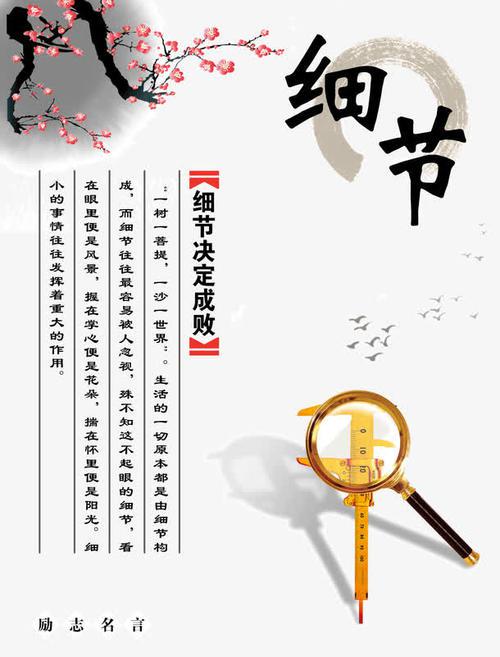 细节
【细节决定成败】
“一树一菩提，一沙一世界”。生活的一切原本都是由细节构
成，而细节往往最容易被人忽视，殊不知这不起眼的细节，看
在眼里便是风景，握在掌心便是花朵，揣在怀里便是阳光。细
小的事情往往发挥着重大的作用。
励志名言